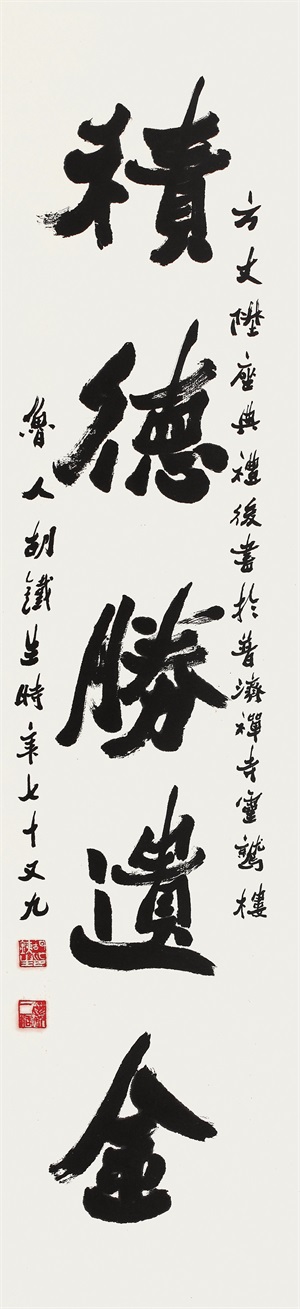 方丈陞座典禮後書於普濟禪寺靈鷲樓
積德勝遺金
魯人胡鐵生時年七十又九